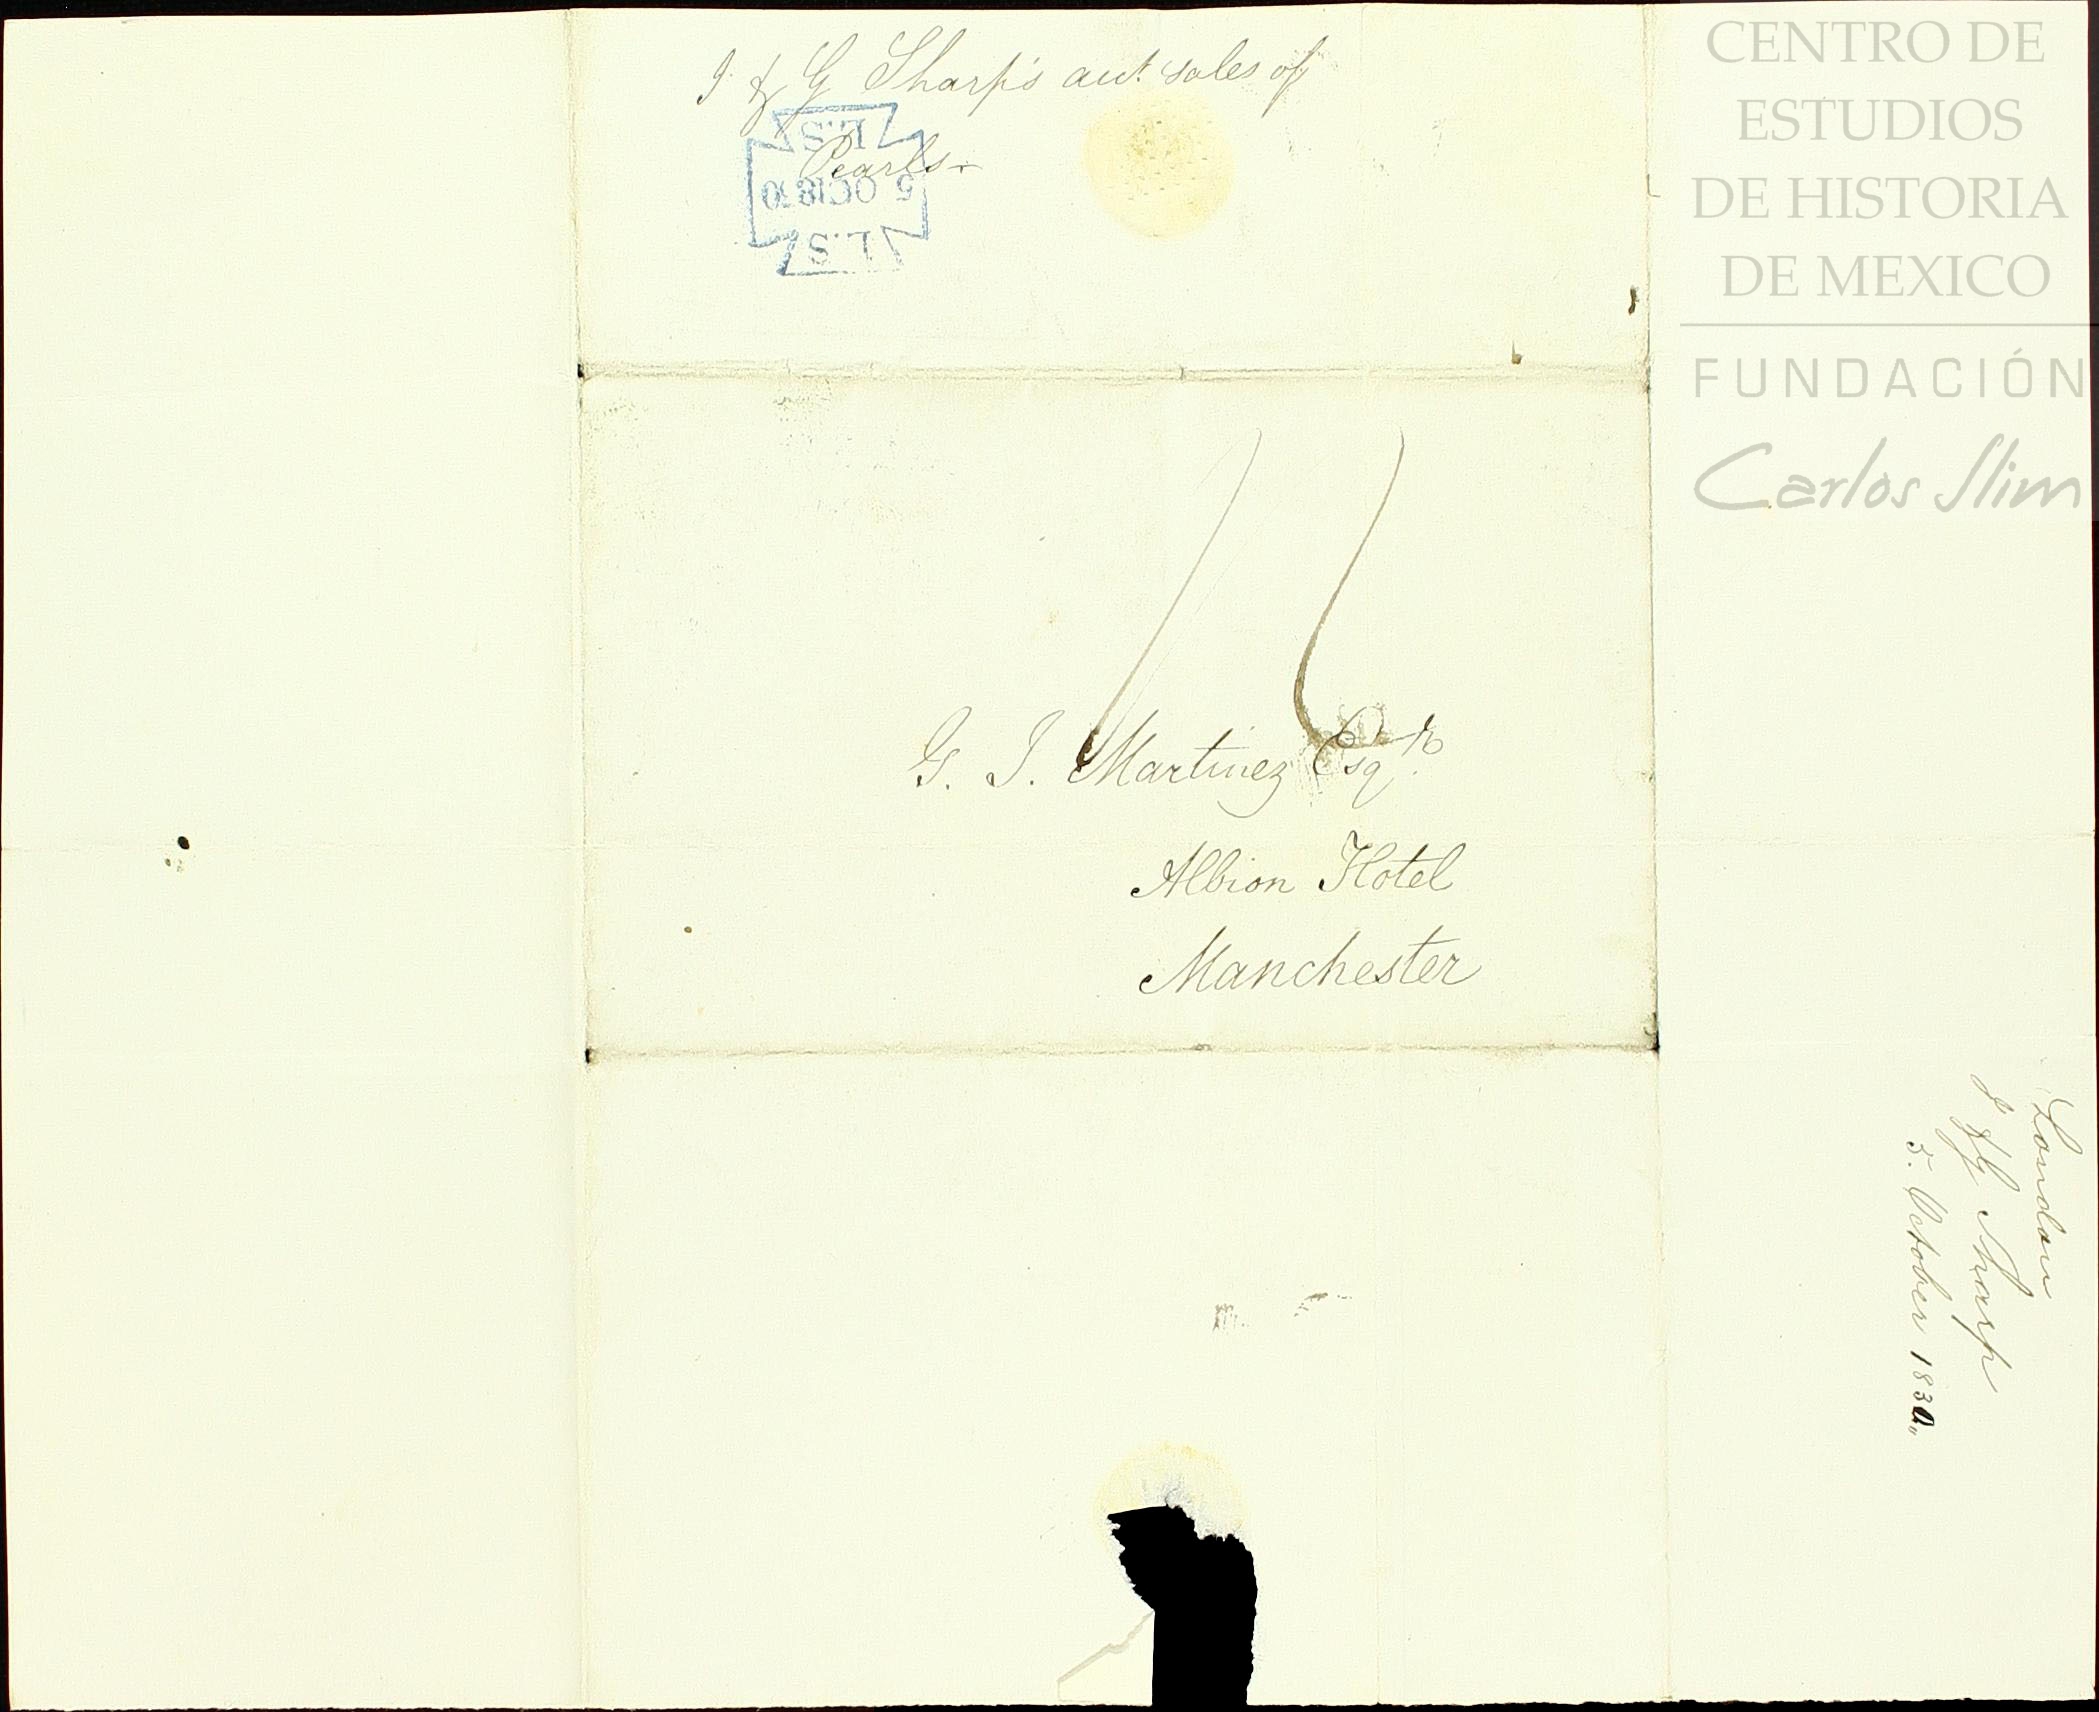 J & G Sharp's acct. sales of
Pearls
L.S
5 OC 1830
L.S
11
G. J. Martinez Esqr.
Albion Hotel
Manchester
London
J & G Sharp
5. October 1830,,
CENTRO DE
ESTUDIOS
DE HISTORIA
DE MEXICO
FUNDACIÓN
Carlos Slim